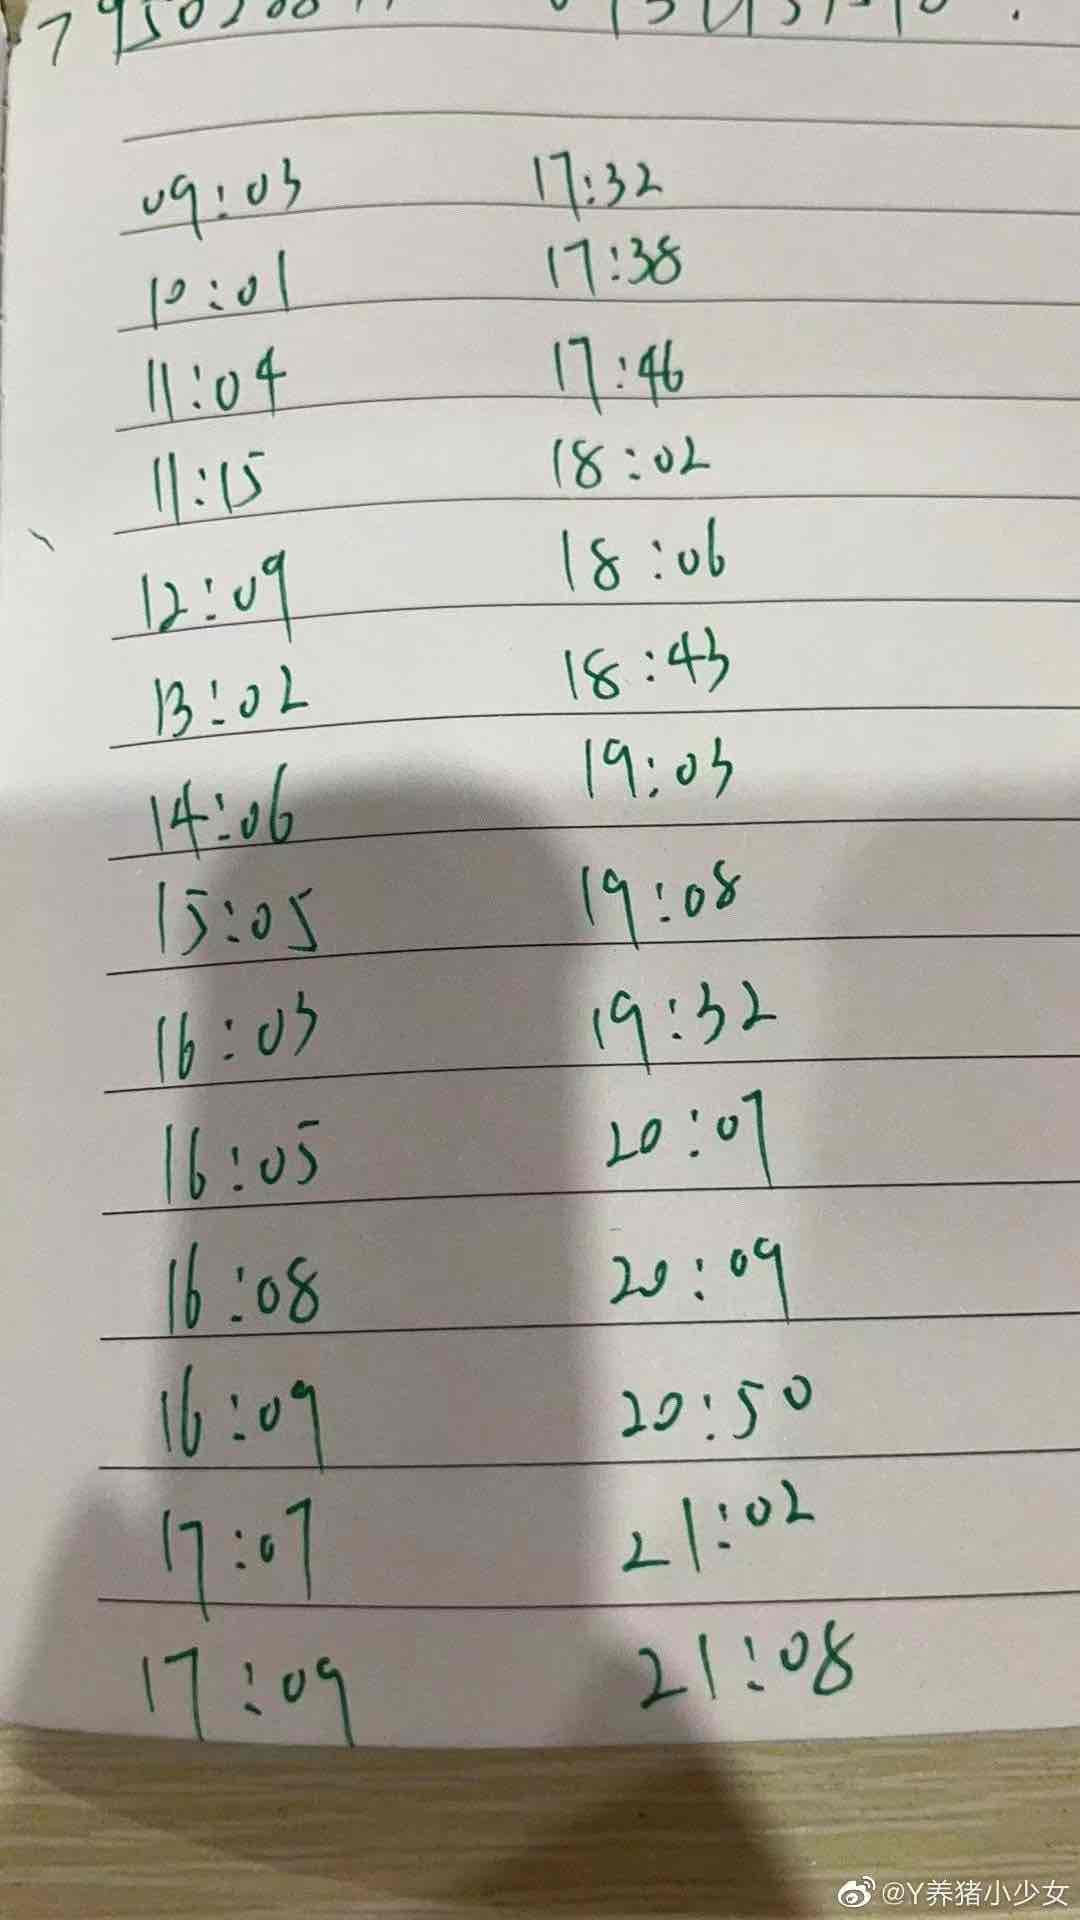 09:03 17:32
10:01 17:38
11:04 17:46
11:15 18:02
12:09 18:06
13:02 18:43
14:06 19:03
15:05 19:08
16:03 19:32
16:05 20:07
16:08 20:09
16:09 20:50
17:07 21:02
17:09 21:08
@Y养猪小少女